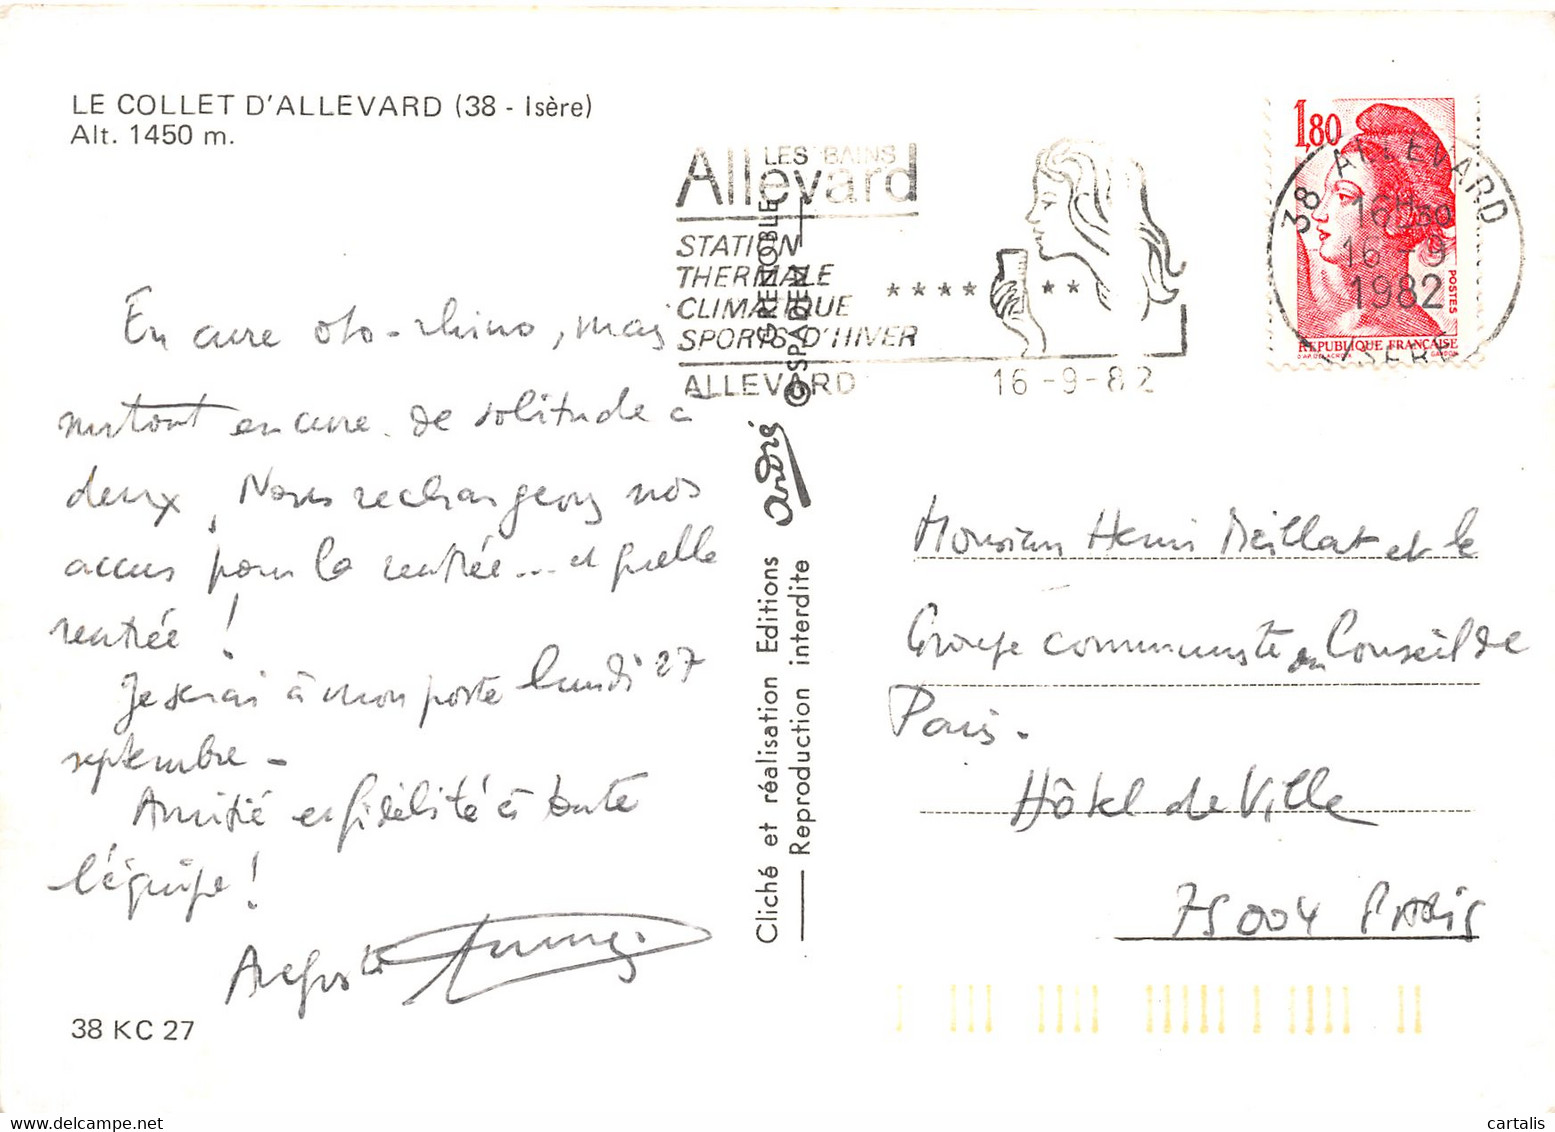 LE COLLET D'ALLEVARD (38 - Isère)
Alt. 1450 m.
LES BAINS
Allevard
STATION
THERMALE
CLIMATIQUE
SPORTS D'HIVER
ALLEVARD 16-9-82
1,80
POSTES
REPUBLIQUE FRANÇAISE
D'AP. DELACROIX GANDON
38 ALLEVARD
16H30
16-9
1982
ISERE
En cure oto-rhino, mais
surtout en cure de solitude à
deux. Nous rechargeons nos
accus pour la rentrée... et quelle
rentrée !
Je serai à mon poste lundi 27
septembre -
Amitié et fidélité à toute
l'équipe !
Auguste
38 KC 27
Cliché et réalisation Editions andré
GRENOBLE
Reproduction interdite
SPADEM
Monsieur Henri Meillat et le
Groupe communiste au Conseil de
Paris.
Hôtel de Ville
75004 PARIS
cartalis
www.delcampe.net